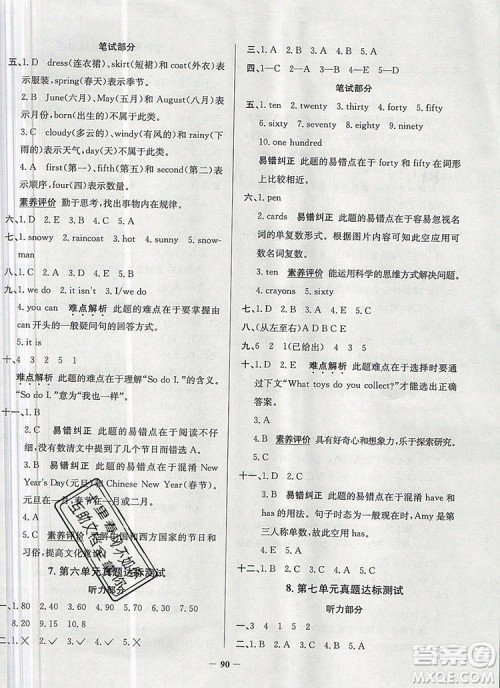 笔试部分
五、1. D　dress(连衣裙)、skirt(短裙)和 coat(外衣)表
示服装，spring(春天)表示季节。
2. B　June(六月)、May(五月)和 August(八月)表
示月份，born(出生的)不属于此类。
3. C　cloudy(多云的)、windy(有风的)和 rainy(下
雨的)表示天气，day(天)不属于此类。
4. A　first(第一)、fifth(第五)和 second(第二)表
示顺序，four(四)表示数量。
素养评价　勤于思考，找出事物内在规律。
六、1. D　2. E　3. B　4. A　5. C
七、1. snowy　2. raincoat　3. hot　4. sunny　5. snow-
man
八、1. C　2. B　3. A　4. D　5. C
九、1. I do　2. it isn't　3. I/we do
4. you can　难点解析　此题的难点在于要掌握由
can 开头的一般疑问句的回答方式。
5. it is
十、4　3　2　5　1
难点解析　此题的难点在于理解“So do I.”的含义。
“So do I.”意为“我也是”。
十一、1. B　易错纠正　此题的易错点在于阅读不仔
细，没有数清文中下了几个节目而错选 A。
2. B　易错纠正　此题的易错点在于混淆 New
Year's Day(元旦)和 Chinese New Year(春节)。
元旦在一月，春节在一月或二月。
3. C　素养评价　了解中国和西方国家的节日和
习俗，提高文化意识。
7. 第六单元真题达标测试
听力部分
一、1. 80　2. 90　3. 40　4. 30　5. 15　6. 20　7. 60
8. 50　9. 16　10. 8
二、1. ✓　2. ✕　3. ✓　4. ✕　5. ✓
三、1. A　2. B　3. C　4. A　5. A
四、1. D　2. C　3. A　4. E　5. B
笔试部分
五、1. ten　2. twenty　3. thirty　4. forty　5. fifty
6. sixty　7. seventy　8. eighty　9. ninety
10. one hundred
易错纠正　此题的易错点在于 forty 和 fifty 在词形
上比较相近。
六、1. pen
2. cards　易错纠正　此题的易错点在于容易忽视名
词的单复数形式。根据图片可知此空应用可数
名词复数。
3. ten　素养评价　能运用科学的思维方式解决问题。
4. crayons　5. sixty
七、1. B　2. A　3. B　4. A　5. C
八、(从左往右)A D B C E
九、6　2　1(已给出)　4　3　5
十、1. C　2. A　难点解析　此题的难点在于选择时要通
过下文“What toys do you collect?”才能选出正确
答案。
3. A　4. D　5. B
十一、1. A　2. B
3. B　素养评价　具有好奇心和想象力，乐于探索研究。
十二、1. C　2. D
3. B　易错纠正　此题的易错点在于混淆 have 和
has 的用法。时态为一般现在时，且 Amy 是第
三人称单数，故此空应用 has。
4. A　5. C　6. A　7. D　8. A
8. 第七单元真题达标测试
听力部分
一、3　4　1　5　2
二、1. B　2. A　3. C　4. B　5. A
90
答案圈
MXQE.COM